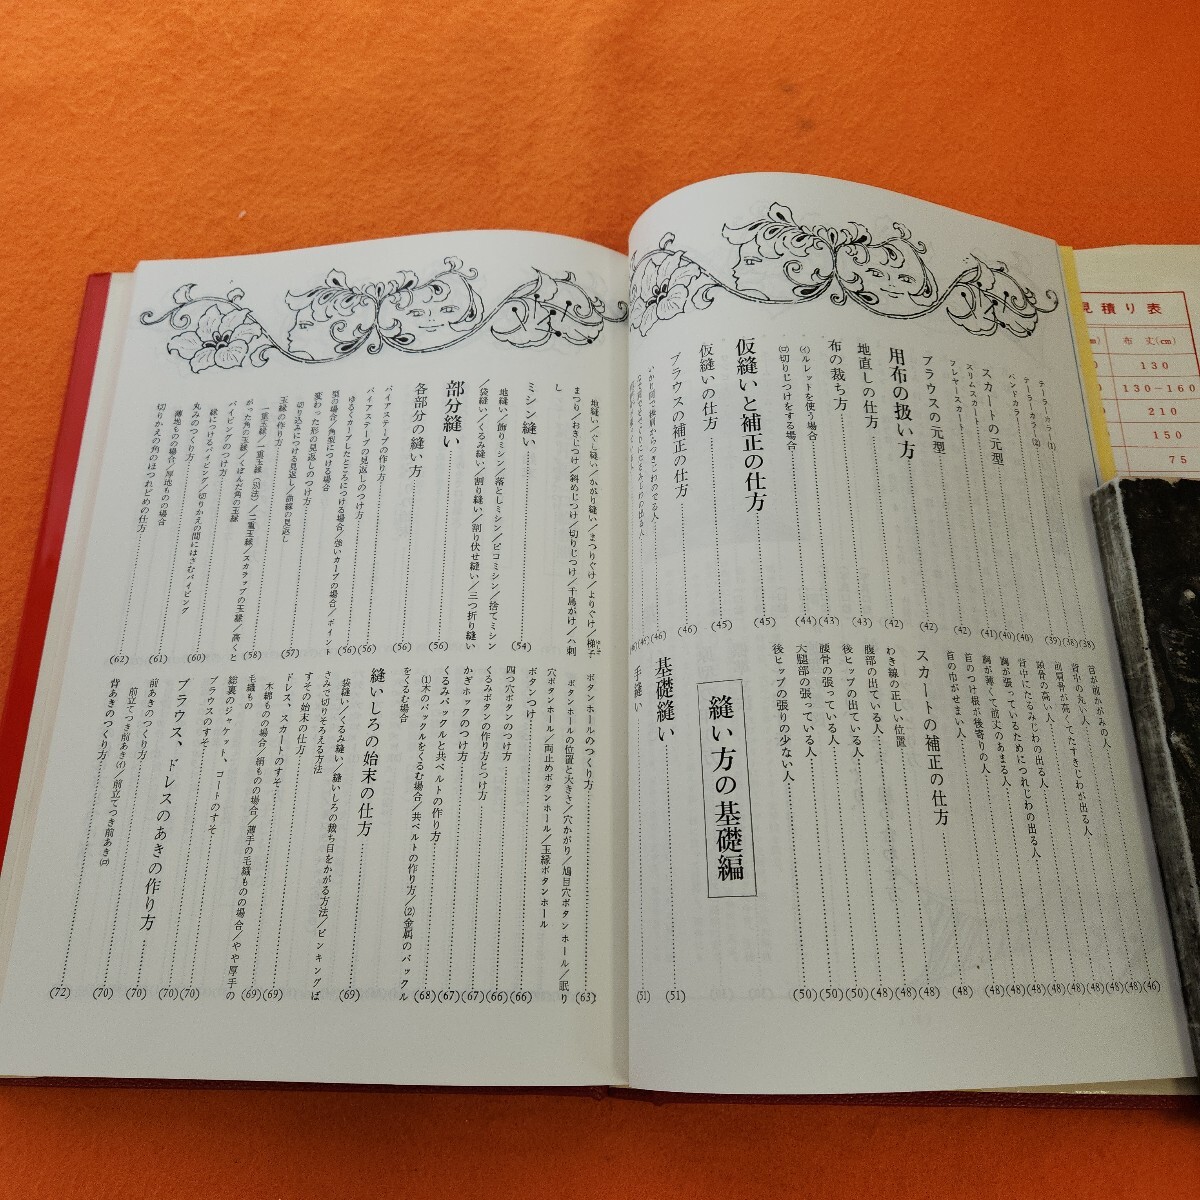 テーラーカラー(1)(38)
テーラーカラー(2)(38)
ベンドカラー(39)
スカートの元型
スリムスカート(40)
フレヤースカート(40)
ブラウスの元型(41)
用布の扱い方(42)
地直しの仕方(42)
布の裁ち方(43)
(イ)ルレットを使う場合(43)
(ロ)切りじつけをする場合(44)
仮縫いと補正の仕方(45)
仮縫いの仕方(45)
ブラウスの補正の仕方(46)
いかり肩で後肩からつきじわのでる人(46)
首が前かがみの人(46)
背中の丸い人(48)
前肩肩が高くてたすきじわが出る人(48)
鎖骨の高い人(48)
背中にたるみじわの出る人(48)
胸が張っているためにつれじわの出る人(48)
胸が薄くて前丈のあまる人(48)
首のつけ根が後寄りの人(48)
首の巾がせまい人(48)
スカートの補正の仕方(48)
わき線の正しい位置(48)
腹部の出ている人(48)
後ヒップの出ている人(50)
腰骨の張っている人(50)
大腿部の張っている人(50)
後ヒップの張りの少ない人(50)
縫い方の基礎編
基礎縫い(51)
手縫い(51)
地縫い/ぐし縫い/かがり縫い/まつりぐけ/よりぐけ/梯子
まつり/おきじつけ/斜めじつけ/切りじつけ/千鳥がけ/ハ刺
し
ミシン縫い(54)
地縫い/飾りミシン/落としミシン/ピコミシン/捨てミシン
/袋縫い/くるみ縫い/割り縫い/割り伏せ縫い/三つ折り縫い
部分縫い
各部分の縫い方(56)
バイアステープの作り方(56)
バイアステープの見返しのつけ方(56)
ゆるくカーブしたところにつける場合/強いカーブの場合/ポイント
型の場合/角型につける場合
変わった形の見返しのつけ方(57)
切り込みにつける見返し/曲線の見返し
玉縁の作り方(58)
一重玉縁/一重玉縁(別法)/二重玉縁/スカラップの玉縁/高くと
がった角の玉縁/くぼんだ角の玉縁
パイピングのつけ方(60)
縁につけるパイピング/切りかえの間にはさむパイピング
丸みのつくり方(61)
薄地ものの場合/厚地ものの場合
切りかえの角のほつれどめの仕方(62)
ボタンホールのつくり方(63)
ボタンホールの位置と大きさ/穴かがり/鳩目穴ボタンホール/眠り
穴ボタンホール/両止めボタンホール/玉縁ボタンホール
ボタンつけ(66)
四つ穴ボタンのつけ方(66)
くるみボタンの作り方とつけ方(67)
かぎホックのつけ方(67)
くるみバックルと共ベルトの作り方(68)
(1)木のバックルをくるむ場合/共ベルトの作り方/(2)金属のバックル
をくるむ場合
縫いしろの始末の仕方(69)
袋縫い/くるみ縫い/縫いしろの裁ち目をかがる方法/ピンキングば
さみで切りそろえる方法
すその始末の仕方(69)
ドレス、スカートのすそ(69)
木綿ものの場合/絹ものの場合/薄手の毛織ものの場合/やや厚手の
毛織もの
総裏のジャケット、コートのすそ(70)
ブラウスのすそ(70)
ブラウス、ドレスのあきの作り方
前あきのつくり方(70)
前立てつき前あき(イ)/前立てつき前あき(ロ)(70)
背あきのつくり方(72)
見積り表
布丈(cm)
130
130-160
210
150
75